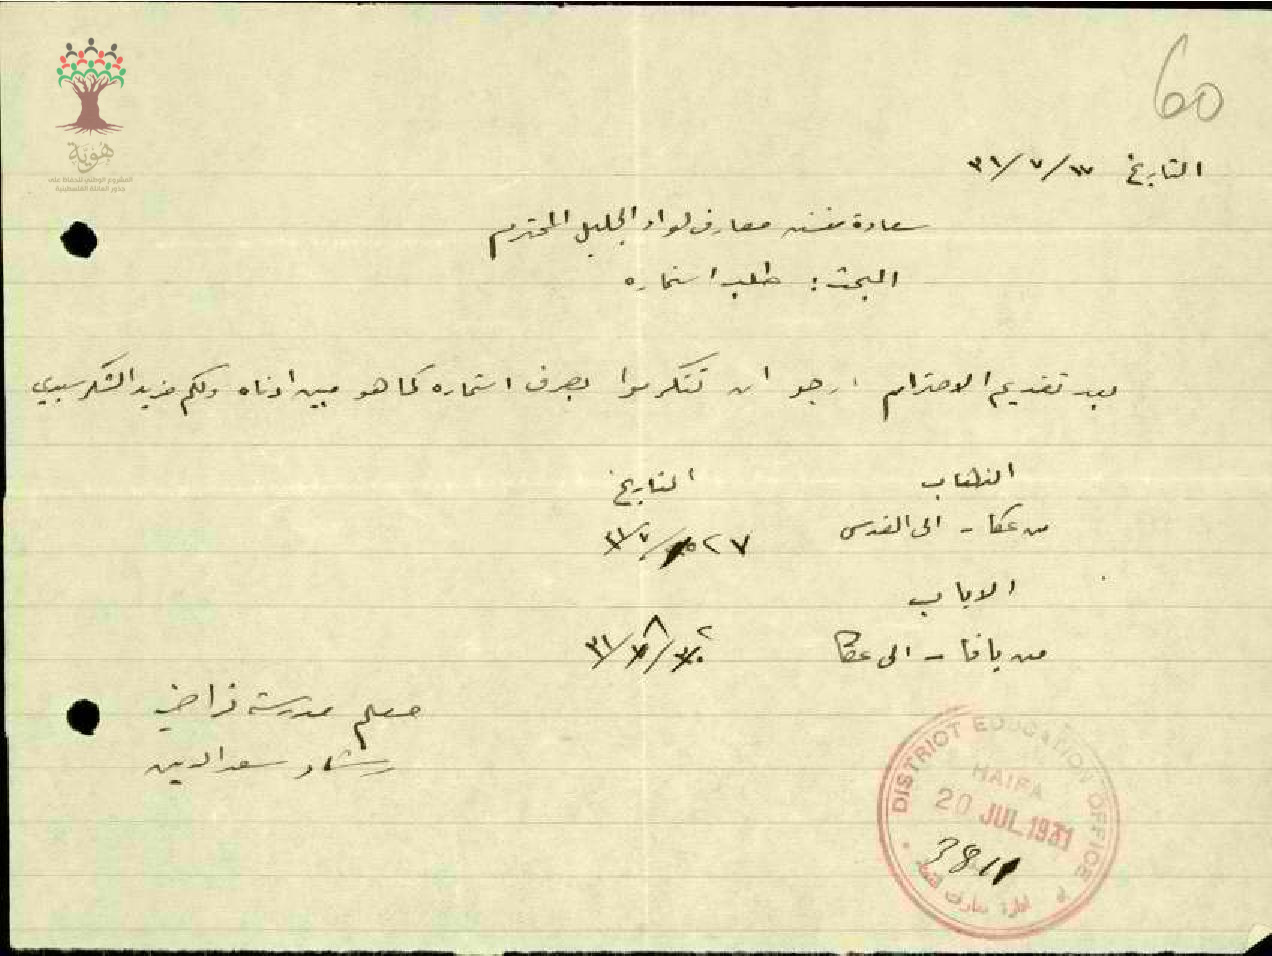 60
هوية
المشروع الوطني للحفاظ على
جذور العائلة الفلسطينية
التاريخ ٣١/٧/
سعادة مفتش معارف لواء الجليل المحترم
البحث: طلب استماره
بعد تقديم الاحترام ارجو ان تتكرموا بصرف استماره كما هو مبين ادناه ولكم مزيد الشكر سيدي
الذهاب التاريخ
من عكا - الى القدس ٢٧ ٣١/٧/
الاياب
من يافا - الى عكا ٣١/٨/
معلم مدرسة
رشاد سعد الدين
DISTRICT EDUCATION OFFICE
HAIFA
20 JUL 1931
3811
ادارة معارف